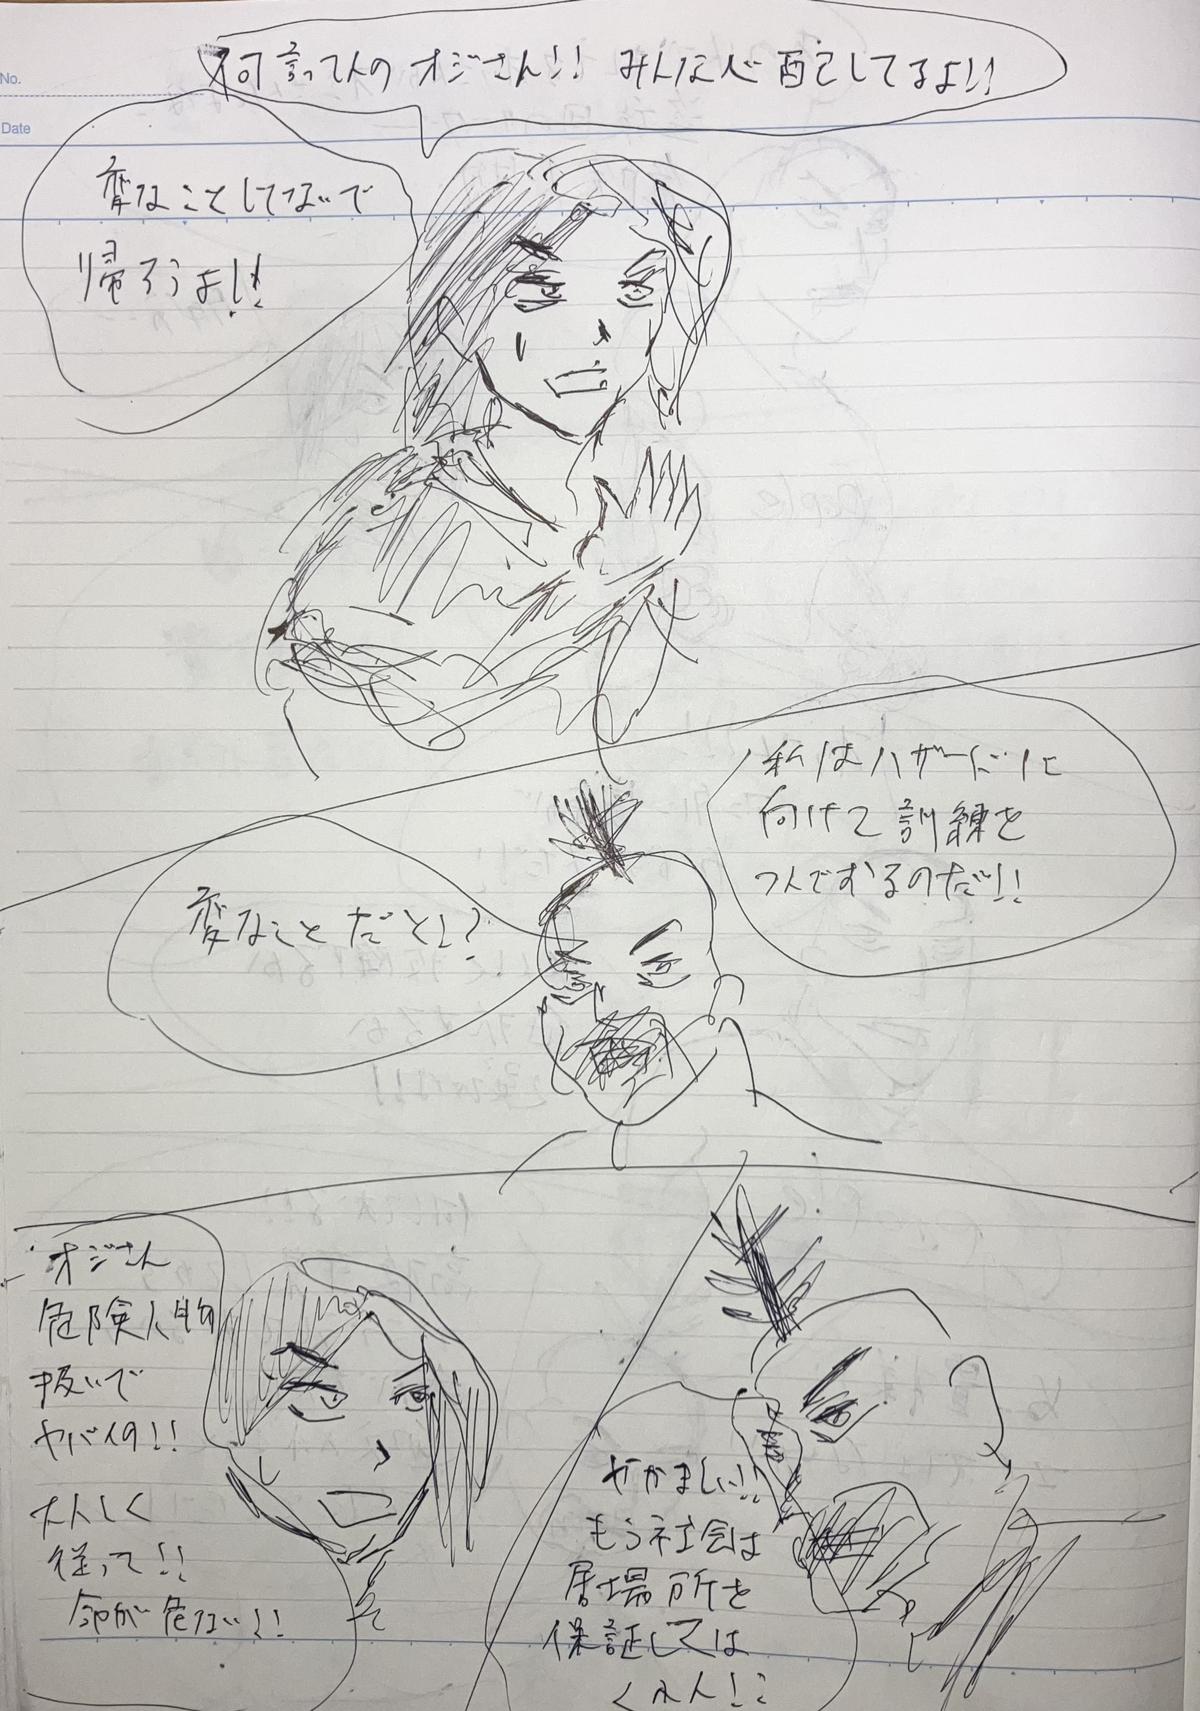 No.
Date
何言ってんのオジさん!! みんな心配してるよ!!
変なことしてないで
帰ろうよ!!
私はハザードに
向けて訓練を
つんでするのだ!!
変なことだと!?
オジさん
危険人物
扱いで
ヤバイよ!!
大人しく
従って!!
命が危ない!!
やかましい!!
もう社会は
居場所を
保証しては
くれん!!